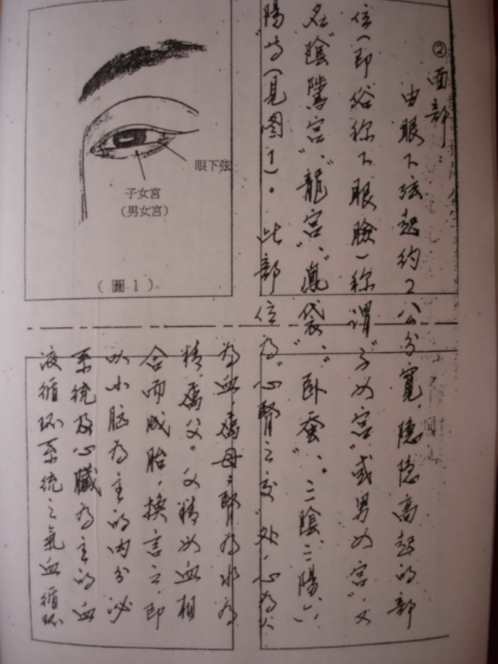 ② 面部：
由眼下弦起約2公分寬，隐隐高起的部
位（即俗称下眼臉）称谓"子女宫"或男女宫"，又
名"陰騭宫"、"龍宫"、"鳯袋"、"卧蚕"、"三陰、三陽、"
陽"等（見图1）。此部位為"心腎之交"处，心為火
為血属母，腎為水為
精，属父。父精母血相
合而成胎，换言之，即
以小脑為主的内分泌
系统及心臟為主的血
液循环系统之氣血循环
眼下弦
子女宮
（男女宮）
（圖1）